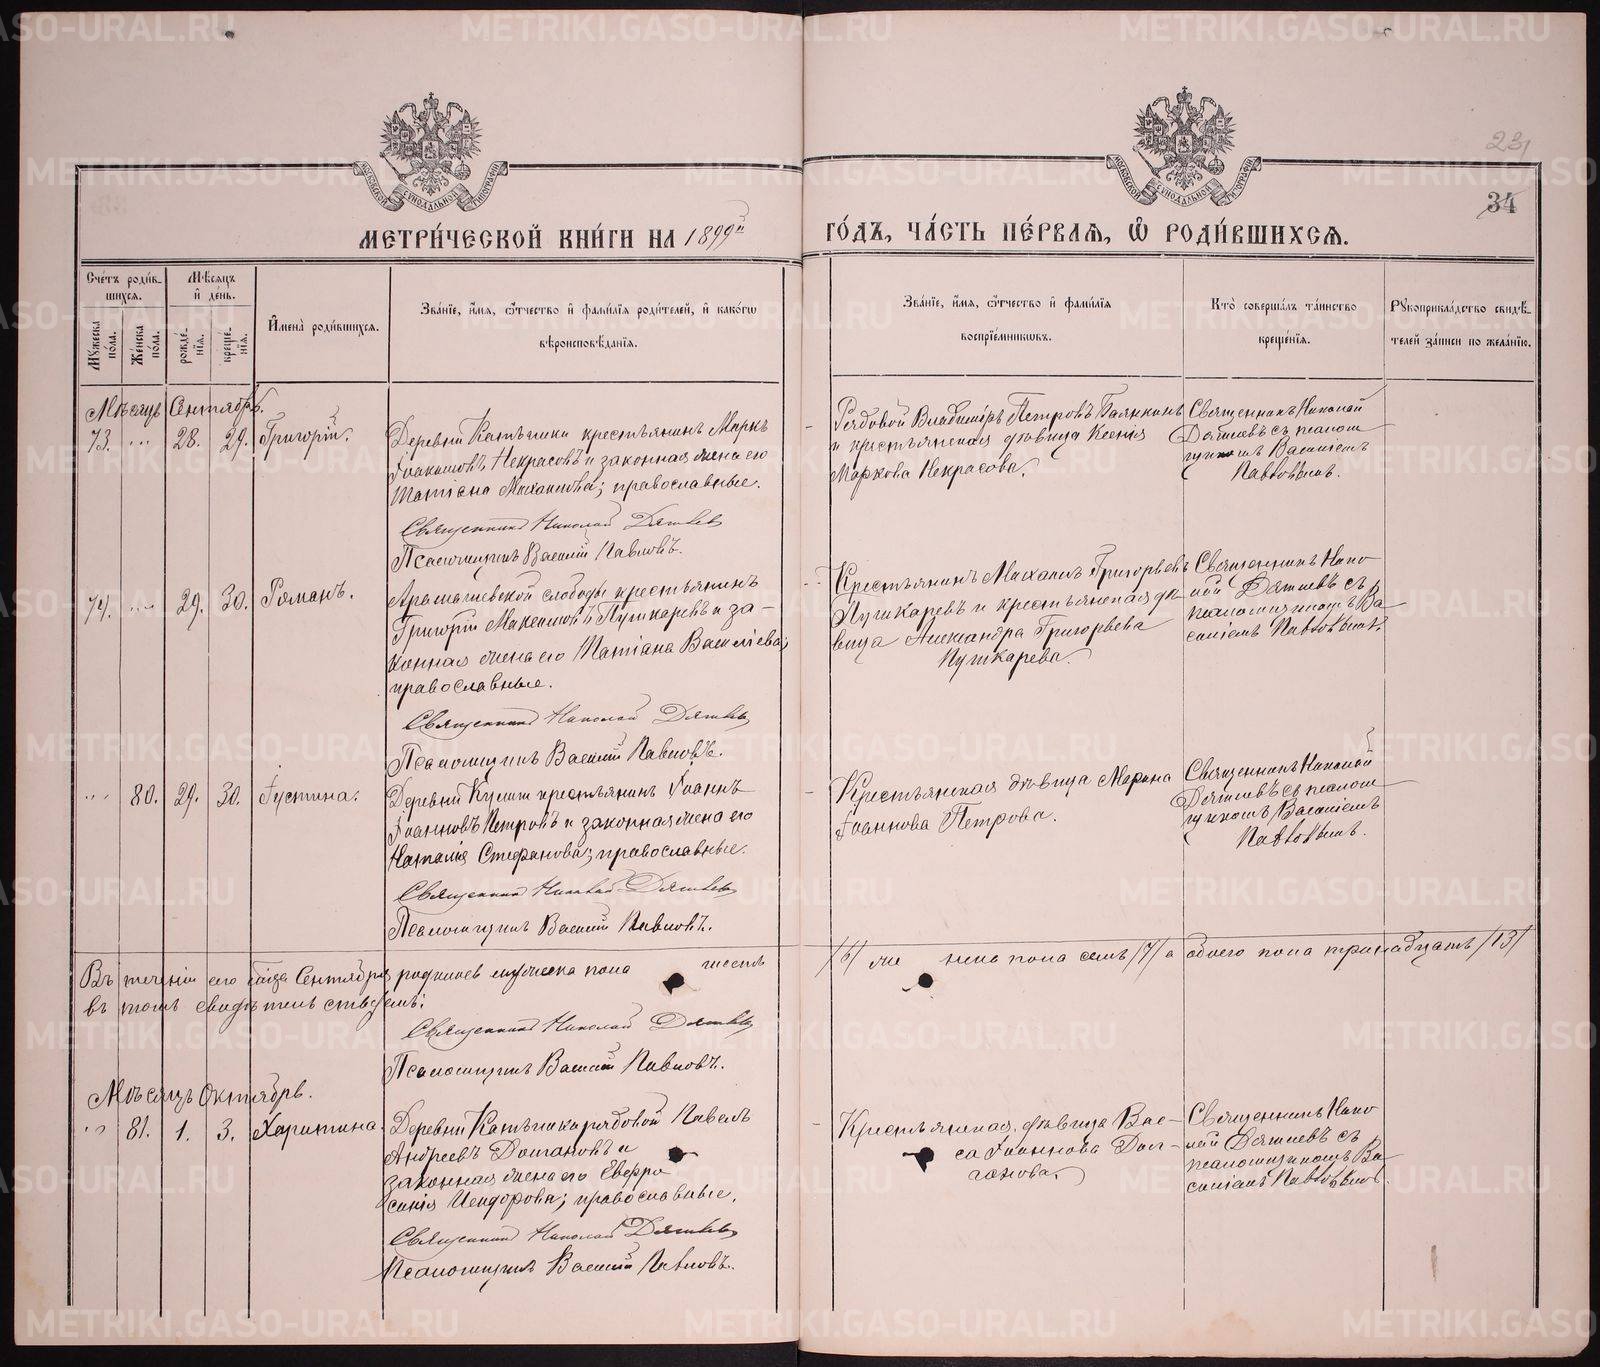 231
34
МЕТРИ́ЧЕСКОЙ КНИ́ГИ НА 1899й ГО́ДЪ, ЧА́СТЬ ПЕ́РВАЯ, Ѡ҆ РОДИ́ВШИХСЯ.
Сче́тъ роди́в-
шихся.
Мꙋ́жеска по́ла.
Же́нска по́ла.
Мѣ́сяцъ
и҆ де́нь.
рожде́-
нїя.
креще́-
нїя.
И҆мена̀ роди́вшихся.
Зва́нїе, и҆́мя, ѻ҆́тчество и҆ фами́лїя роди́телей, и҆ како́гѡ
вѣроисповѣ́данїя.
Зва́нїе, и҆́мя, ѻ҆́тчество и҆ фами́лїя
воспрїе́мникѡвъ.
Кто̀ соверша́лъ та́инство
креще́нїя.
Рꙋкоприкла́дство свидѣ́-
телей за́писи по жела́нїю.
Мѣсяцъ Сентябрь.
73. 28. 29. Григорій.
Деревни Катышки крестьянинъ Маркъ
Іоакимовъ Некрасовъ и законная жена его
Татіана Михаилова; православные.
Священникъ Николай Дягилевъ
Псаломщикъ Василій Павловъ.
Рядовой Владиміръ Петровъ
и крестьянская дѣвица Ксенія
Маркова Некрасова.
Священникъ Николай
Дягилевъ съ псалом
щикомъ Василіемъ
Павловымъ.
74. 29. 30. Романъ.
Арамашевской слободы крестьянинъ
Григорій Максимовъ Пушкаревъ и за-
конная жена его Татіана Василіева;
православные.
Священникъ Николай Дягилевъ
Псаломщикъ Василій Павловъ.
Крестьянинъ Михаилъ Григорьевъ
Пушкаревъ и крестьянская дѣ-
вица Александра Григорьева
Пушкарева.
Священникъ Нико
лай Дягилевъ съ
псаломщикомъ Ва
силіемъ Павловымъ.
80. 29. 30. Іустина.
Деревни крестьянинъ Іоаннъ
Іоанновъ Петровъ и законная жена его
Наталія Стефанова; православные.
Священникъ Николай Дягилевъ
Псаломщикъ Василій Павловъ.
Крестьянская дѣвица Марина
Іоаннова Петрова.
Священникъ Николай
Дягилевъ съ псалом
щикомъ Василіемъ
Павловымъ.
Въ теченіи сего Сентября родилось мужеска пола шесть /6/ женска пола семь /7/ а обоего пола тринадцать /13/
въ томъ свидѣтельствуемъ:
Священникъ Николай Дягилевъ
Псаломщикъ Василій Павловъ.
Мѣсяцъ Октябрь.
81. 1. 3. Харитина.
Деревни Катышки рядовой Павелъ
Андреевъ Долгановъ и
законная жена его Евфро
синія Исидорова; православные.
Священникъ Николай Дягилевъ
Псаломщикъ Василій Павловъ.
Крестьянская дѣвица Вас-
са Іоаннова Дол-
ганова.
Священникъ Нико
лай Дягилевъ съ
псаломщикомъ Ва
силіемъ Павловымъ.
METRIKI.GASO-URAL.RU